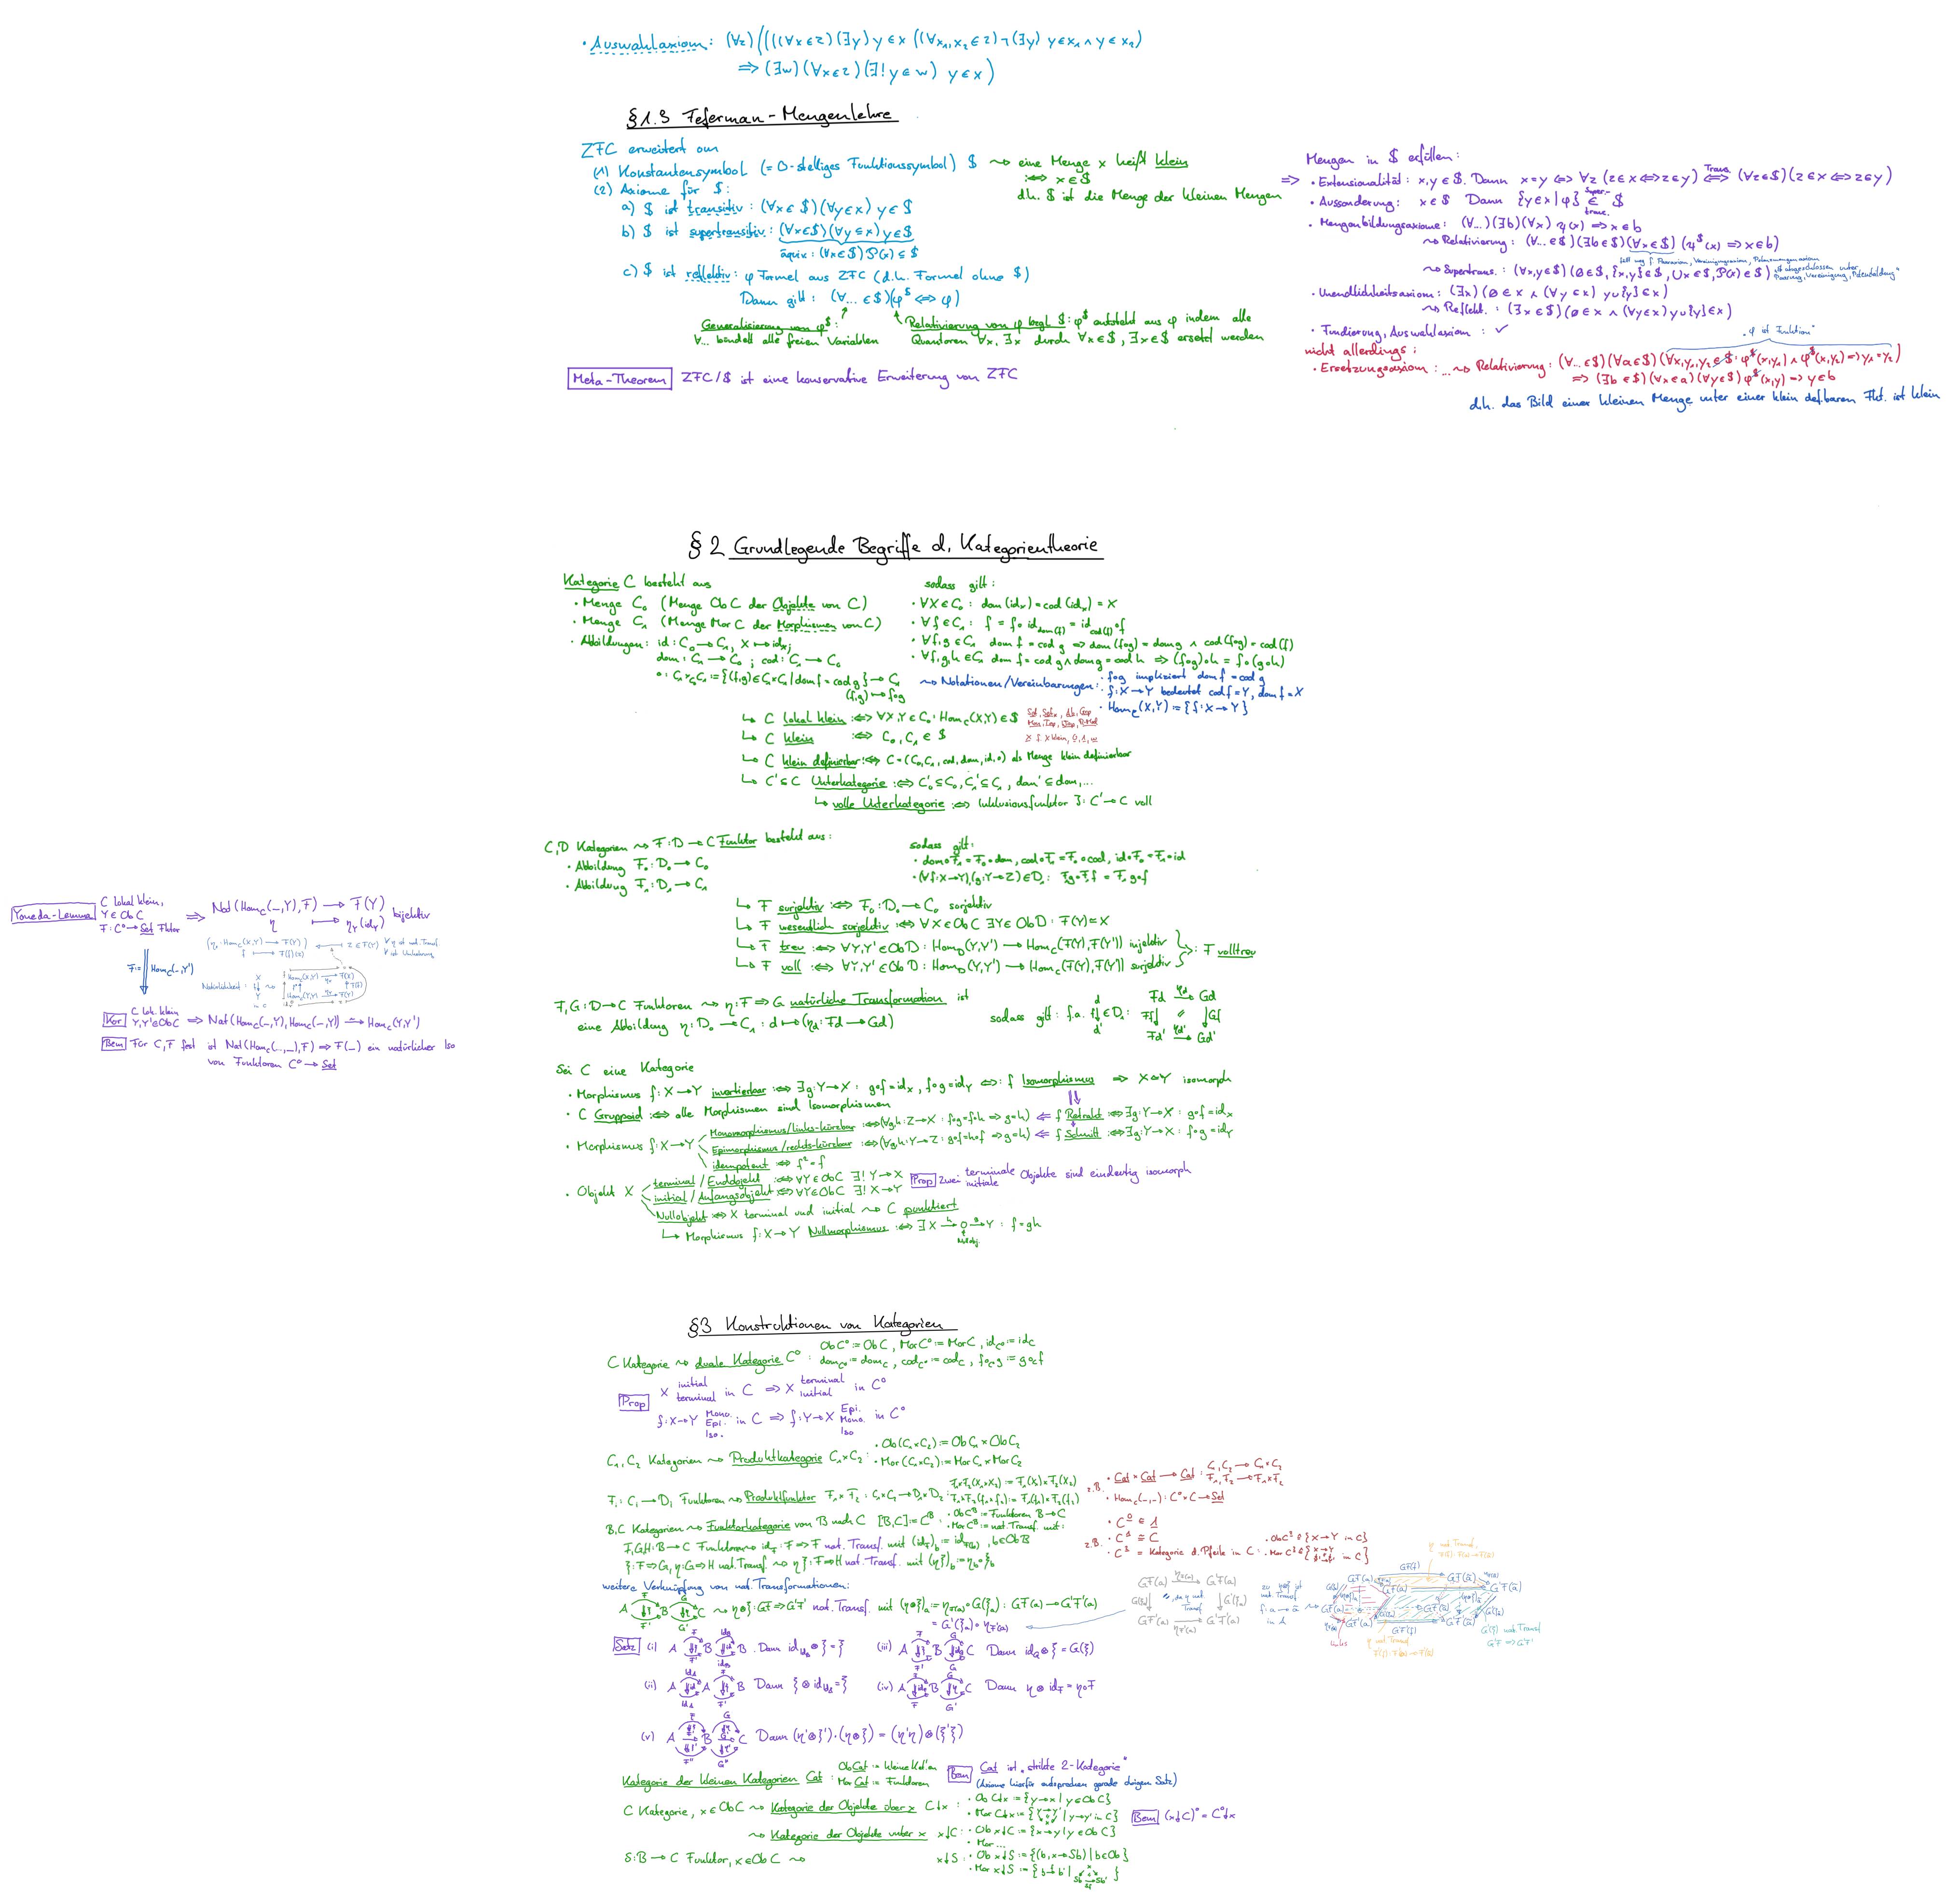 • Auswahlaxiom: (∀z)((((∀x∈z)(∃y) y∈x ((∀x₁,x₂∈z)¬(∃y) y∈x₁ ∧ y∈x₂)
⟹ (∃w)(∀x∈z)(∃!y∈w) y∈x)
§1.3 Feferman-Mengenlehre
ZFC erweitert um
(1) Konstantensymbol (= 0-stelliges Funktionssymbol) $ ⇝ eine Menge x heißt klein
:⟺ x∈$
d.h. $ ist die Menge der kleinen Mengen
(2) Axiome für $:
a) $ ist transitiv: (∀x∈$)(∀y∈x) y∈$
b) $ ist supertransitiv: (∀x∈$)(∀y⊆x) y∈$
äquiv: (∀x∈$) P(x)⊆$
c) $ ist reflektiv: φ Formel aus ZFC (d.h. Formel ohne $)
Dann gilt: (∀...∈$)(φ^$ ⟺ φ)
Generalisierung von φ^$:
∀... bindet alle freien Variablen
Relativierung von φ bzgl $: φ^$ entsteht aus φ indem alle
Quantoren ∀x, ∃x durch ∀x∈$, ∃x∈$ ersetzt werden
Meta-Theorem ZFC/$ ist eine konservative Erweiterung von ZFC
Mengen in $ erfüllen:
⟹ • Extensionalität: x,y∈$. Dann x=y ⟺ ∀z (z∈x⟺z∈y) ⟺ Trans. (∀z∈$)(z∈x⟺z∈y)
• Aussonderung: x∈$ Dann {y∈x|φ} ∈ $ Super-trans.
• Mengenbildungsaxiome: (∀...)(∃b)(∀x) ψ(x) ⟹ x∈b
⇝ Relativierung: (∀...∈$)(∃b∈$)(∀x∈$)(ψ^$(x) ⟹ x∈b)
fällt weg f. Paaraxiom, Vereinigungsaxiom, Potenzmengenaxiom
⇝ Supertrans.: (∀x,y∈$)(∅∈$, {x,y}∈$, ∪x∈$, P(x)∈$) "$ abgeschlossen unter
Paarung, Vereinigung, Potenzbildung"
• Unendlichkeitsaxiom: (∃x)(∅∈x ∧ (∀y∈x) y∪{y}∈x)
⇝ Reflekt.: (∃x∈$)(∅∈x ∧ (∀y∈x) y∪{y}∈x)
• Fundierung, Auswahlaxiom: ✓
"φ ist Funktion"
nicht allerdings:
• Ersetzungsaxiom: ... ⇝ Relativierung: (∀...∈$)(∀a∈$)(∀x,y₁,y₂∈$: φ^$(x,y₁) ∧ φ^$(x,y₂) ⟹ y₁=y₂)
⟹ (∃b∈$)(∀x∈a)(∀y∈$) φ^$(x,y) ⟹ y∈b
d.h. das Bild einer kleinen Menge unter einer klein def.baren Fkt. ist klein
§2 Grundlegende Begriffe d. Kategorientheorie
Kategorie C besteht aus
• Menge C₀ (Menge Ob C der Objekte von C)
• Menge C₁ (Menge Mor C der Morphismen von C)
• Abbildungen: id: C₀→C₁, X↦id_X;
dom: C₁→C₀; cod: C₁→C₀
∘: C₁×_{C₀}C₁ := {(f,g)∈C₁×C₁ | dom f = cod g} → C₁
(f,g) ↦ f∘g
sodass gilt:
• ∀X∈C₀: dom(id_X) = cod(id_X) = X
• ∀f∈C₁: f = f∘id_{dom(f)} = id_{cod(f)}∘f
• ∀f,g∈C₁ dom f = cod g ⟹ dom(f∘g) = dom g ∧ cod(f∘g) = cod(f)
• ∀f,g,h∈C₁ dom f = cod g ∧ dom g = cod h ⟹ (f∘g)∘h = f∘(g∘h)
⇝ Notationen/Vereinbarungen: • f∘g impliziert dom f = cod g
• f: X→Y bedeutet cod f = Y, dom f = X
• Hom_C(X,Y) := {f: X→Y}
↳ C lokal klein :⟺ ∀X,Y∈C₀: Hom_C(X,Y)∈$
↳ C klein :⟺ C₀,C₁∈$
↳ C klein definierbar :⟺ C=(C₀,C₁,cod,dom,id,∘) als Menge klein definierbar
↳ C'⊆C Unterkategorie :⟺ C'₀⊆C₀, C'₁⊆C₁, dom'⊆dom,...
↳ volle Unterkategorie :⟺ Inklusionsfunktor I: C'→C voll
C,D Kategorien ⇝ F: D→C Funktor besteht aus:
• Abbildung F₀: D₀→C₀
• Abbildung F₁: D₁→C₁
sodass gilt:
• dom∘F₁=F₀∘dom, cod∘F₁=F₀∘cod, id∘F₀=F₁∘id
• (∀f:X→Y),(g:Y→Z)∈D₁: F₁g∘F₁f = F₁ g∘f
↳ F surjektiv :⟺ F₀: D₀→C₀ surjektiv
↳ F wesentlich surjektiv :⟺ ∀X∈Ob C ∃Y∈Ob D: F(Y)≅X
↳ F treu :⟺ ∀Y,Y'∈Ob D: Hom_D(Y,Y') → Hom_C(F(Y),F(Y')) injektiv
↳ F voll :⟺ ∀Y,Y'∈Ob D: Hom_D(Y,Y') → Hom_C(F(Y),F(Y')) surjektiv
: F volltreu
Yoneda-Lemma C lokal klein,
Y∈Ob C
F: C°→Set Fktor
⟹ Nat(Hom_C(−,Y),F) → F(Y)
η ↦ η_Y(id_Y) bijektiv
F:= Hom_C(−,Y')
Natürlichkeit:
Kor C lok. klein
Y,Y'∈Ob C ⟹ Nat(Hom_C(−,Y),Hom_C(−,Y')) → Hom_C(Y,Y')
Bem Für C,F fest ist Nat(Hom_C(..,−),F) ⟹ F(−) ein natürlicher Iso
von Funktoren C°→Set
F,G: D→C Funktoren ⇝ η: F⟹G natürliche Transformation ist
eine Abbildung η: D₀→C₁: d↦(η_d: Fd→Gd)
sodass gilt: f.a. d f↓ d' ∈D₁: Fd η_d→ Gd
Ff↓ ↓Gf
Fd' η_d'→ Gd'
Sei C eine Kategorie
• Morphismus f: X→Y invertierbar :⟺ ∃g: Y→X: g∘f=id_X, f∘g=id_Y ⟺: f Isomorphismus ⟹ X≅Y isomorph
• C Gruppoid :⟺ alle Morphismen sind Isomorphismen
• Morphismus f: X→Y
Monomorphismus/links-kürzbar :⟺ (∀g,h: Z→X: f∘g=f∘h ⟹ g=h) ⟸ f Retrakt :⟺ ∃g: Y→X: g∘f=id_X
Epimorphismus/rechts-kürzbar :⟺ (∀g,h: Y→Z: g∘f=h∘f ⟹ g=h) ⟸ f Schnitt :⟺ ∃g: Y→X: f∘g=id_Y
idempotent :⟺ f²=f
• Objekt X
terminal / Endobjekt :⟺ ∀Y∈Ob C ∃! Y→X
initial / Anfangsobjekt :⟺ ∀Y∈Ob C ∃! X→Y
Prop Zwei terminale initiale Objekte sind eindeutig isomorph
Nullobjekt :⟺ X terminal und initial ⇝ C punktiert
↳ Morphismus f: X→Y Nullmorphismus :⟺ ∃ X h→ 0 g→ Y: f=gh
Nullobj.
§3 Konstruktionen von Kategorien
C Kategorie ⇝ duale Kategorie C°: Ob C° := Ob C, Mor C° := Mor C, id_C° := id_C
dom_C° := dom_C, cod_C° := cod_C, f∘_C° g := g∘_C f
Prop X initial terminal in C ⟹ X terminal initial in C°
f: X→Y Mono. Epi. Iso. in C ⟹ f: Y→X Epi. Mono. Iso in C°
C₁,C₂ Kategorien ⇝ Produktkategorie C₁×C₂: • Ob(C₁×C₂) := Ob C₁×Ob C₂
• Mor(C₁×C₂) := Mor C₁×Mor C₂
F_i: C_i→D_i Funktoren ⇝ Produktfunktor F₁×F₂: C₁×C₂→D₁×D₂: F₁×F₂(X₁×X₂) := F₁(X₁)×F₂(X₂)
F₁×F₂(f₁×f₂) := F₁(f₁)×F₂(f₂)
z.B. • Cat×Cat→Cat: C₁,C₂→C₁×C₂
F₁,F₂→F₁×F₂
• Hom_C(−,−): C°×C→Set
B,C Kategorien ⇝ Funktorkategorie von B nach C [B,C]:=C^B: • Ob C^B := Funktoren B→C
• Mor C^B := nat. Transf. mit:
F,G,H: B→C Funktoren ⇝ id_F: F⟹F nat. Transf. mit (id_F)_b = id_{F(b)}, b∈Ob B
ξ: F⟹G, η: G⟹H nat. Transf. ⇝ ηξ: F⟹H nat. Transf. mit (ηξ)_b := η_b∘ξ_b
z.B. • C^0 ≅ 1
• C^1 ≅ C
• C^2 = Kategorie d. Pfeile in C: • Ob C^2 ≅ {X→Y in C}
weitere Verknüpfung von nat. Transformationen:
⇝ η⊗ξ: GF⟹G'F' nat. Transf. mit (η⊗ξ)_a := η_{F'(a)}∘G(ξ_a): GF(a)→G'F'(a)
= G'(ξ_a)∘η_{F(a)}
Satz (i) A B B. Dann id_{id_B}⊗ξ=ξ
(iii) A B C Dann id_G⊗ξ = G(ξ)
(ii) A A B Dann ξ⊗id_{id_A}=ξ
(iv) A B C Dann η⊗id_F = η∘F
(v) A B C Dann (η'⊗ξ')·(η⊗ξ) = (η'η)⊗(ξ'ξ)
Kategorie der kleinen Kategorien Cat: Ob Cat := kleine Kat.en
Mor Cat := Funktoren
Bem Cat ist "strikte 2-Kategorie"
(Axiome hierfür entsprechen gerade obigen Satz)
C Kategorie, x∈Ob C ⇝ Kategorie der Objekte über x C↓x: • Ob C↓x := {y→x | y∈Ob C}
• Mor C↓x := {y→y' | y→y' in C}
Bem (x↓C)° = C°↓x
⇝ Kategorie der Objekte unter x x↓C: • Ob x↓C := {x→y | y∈Ob C}
• Mor ...
S: B→C Funktor, x∈Ob C ⇝ x↓S: • Ob x↓S := {(b, x→Sb) | b∈Ob}
• Mor x↓S := {b f→ b' | x Sb Sf→ Sb'}